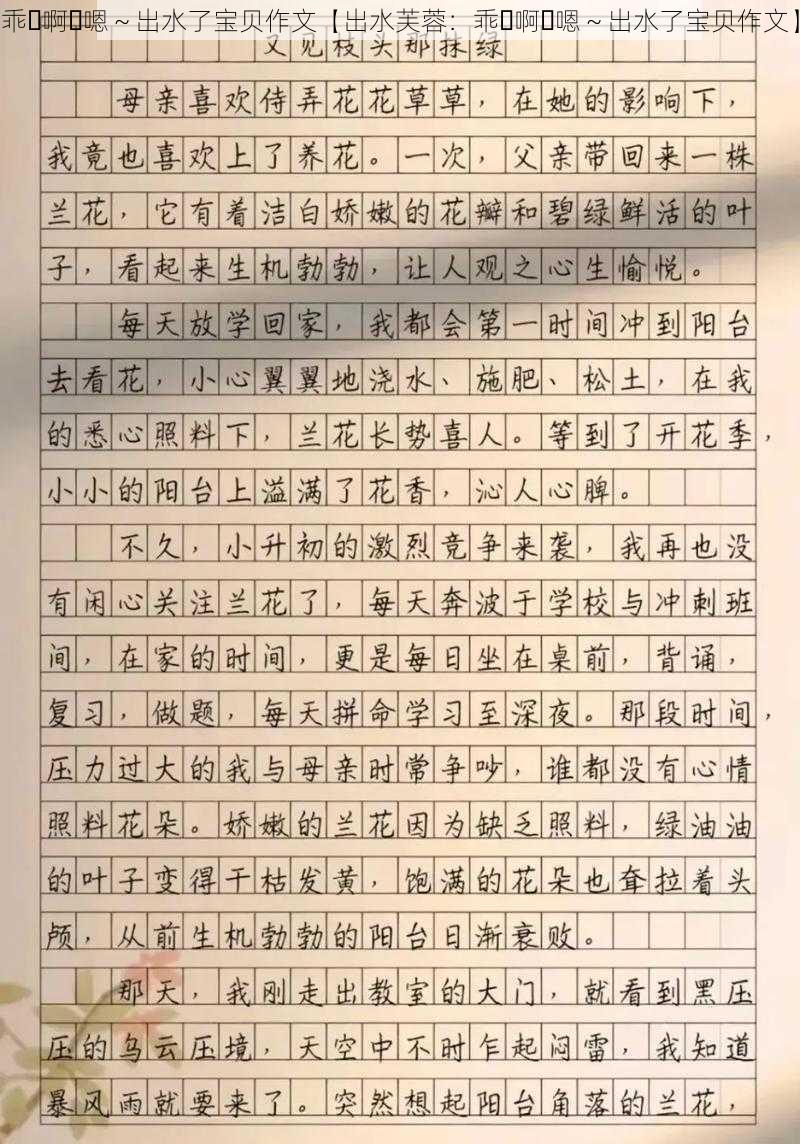 乖啊嗯～出水了宝贝作文【出水芙蓉：乖啊嗯～出水了宝贝作文】
又见枝头那抹绿
母亲喜欢侍弄花花草草，在她的影响下，
我竟也喜欢上了养花。一次，父亲带回来一株
兰花，它有着洁白娇嫩的花瓣和碧绿鲜活的叶
子，看起来生机勃勃，让人观之心生愉悦。
每天放学回家，我都会第一时间冲到阳台
去看花，小心翼翼地浇水、施肥、松土，在我
的悉心照料下，兰花长势喜人。等到了开花季，
小小的阳台上溢满了花香，沁人心脾。
不久，小升初的激烈竞争来袭，我再也没
有闲心关注兰花了，每天奔波于学校与冲刺班
间，在家的时间，更是每日坐在桌前，背诵，
复习，做题，每天拼命学习至深夜。那段时间，
压力过大的我与母亲时常争吵，谁都没有心情
照料花朵。娇嫩的兰花因为缺乏照料，绿油油
的叶子变得干枯发黄，饱满的花朵也耷拉着头
颅，从前生机勃勃的阳台日渐衰败。
那天，我刚走出教室的大门，就看到黑压
压的乌云压境，天空中不时乍起闷雷，我知道
暴风雨就要来了。突然想起阳台角落的兰花，